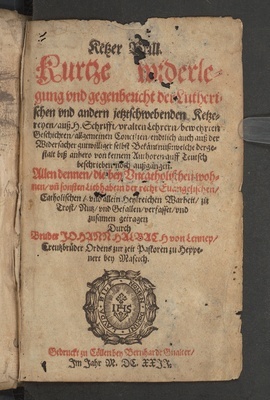 Ketzer
Kurtze widerle-
gung vnd gegenbeucht der Lutheri-
schen vnd andern jetzschwebenden Ketze-
reyen / auß H. Schrifft / vralten Lehrern / bewehrten
Geschichten / allgemeinen Concilien / endtlich auch auß der
Widersacher gutwilliger selbst Bekäntnuß: welche derge-
stalt biß anhero von keinem Authoren auff Teutsch
beschrieben noch außgangen.
Allen dennen / die bey Vncatholischen woh-
nen / vñ sonsten Liebhabern der recht Euangelischen /
Catholischen / vnd allein Heylreichen Warheit / zu
Trost / Nutz / vnd Gefallen / verfasset / vnd
zusamen getragen
Durch
Bruder JOHANN HALBACH von Lenney /
Creutzbrüder Ordens zur zeit Pastoren zu
nert bey Maseich.
IHS
Gedruckt zu Cöllen bey Bernhardt Gualter /
Im Jahr M. DC. XXII.